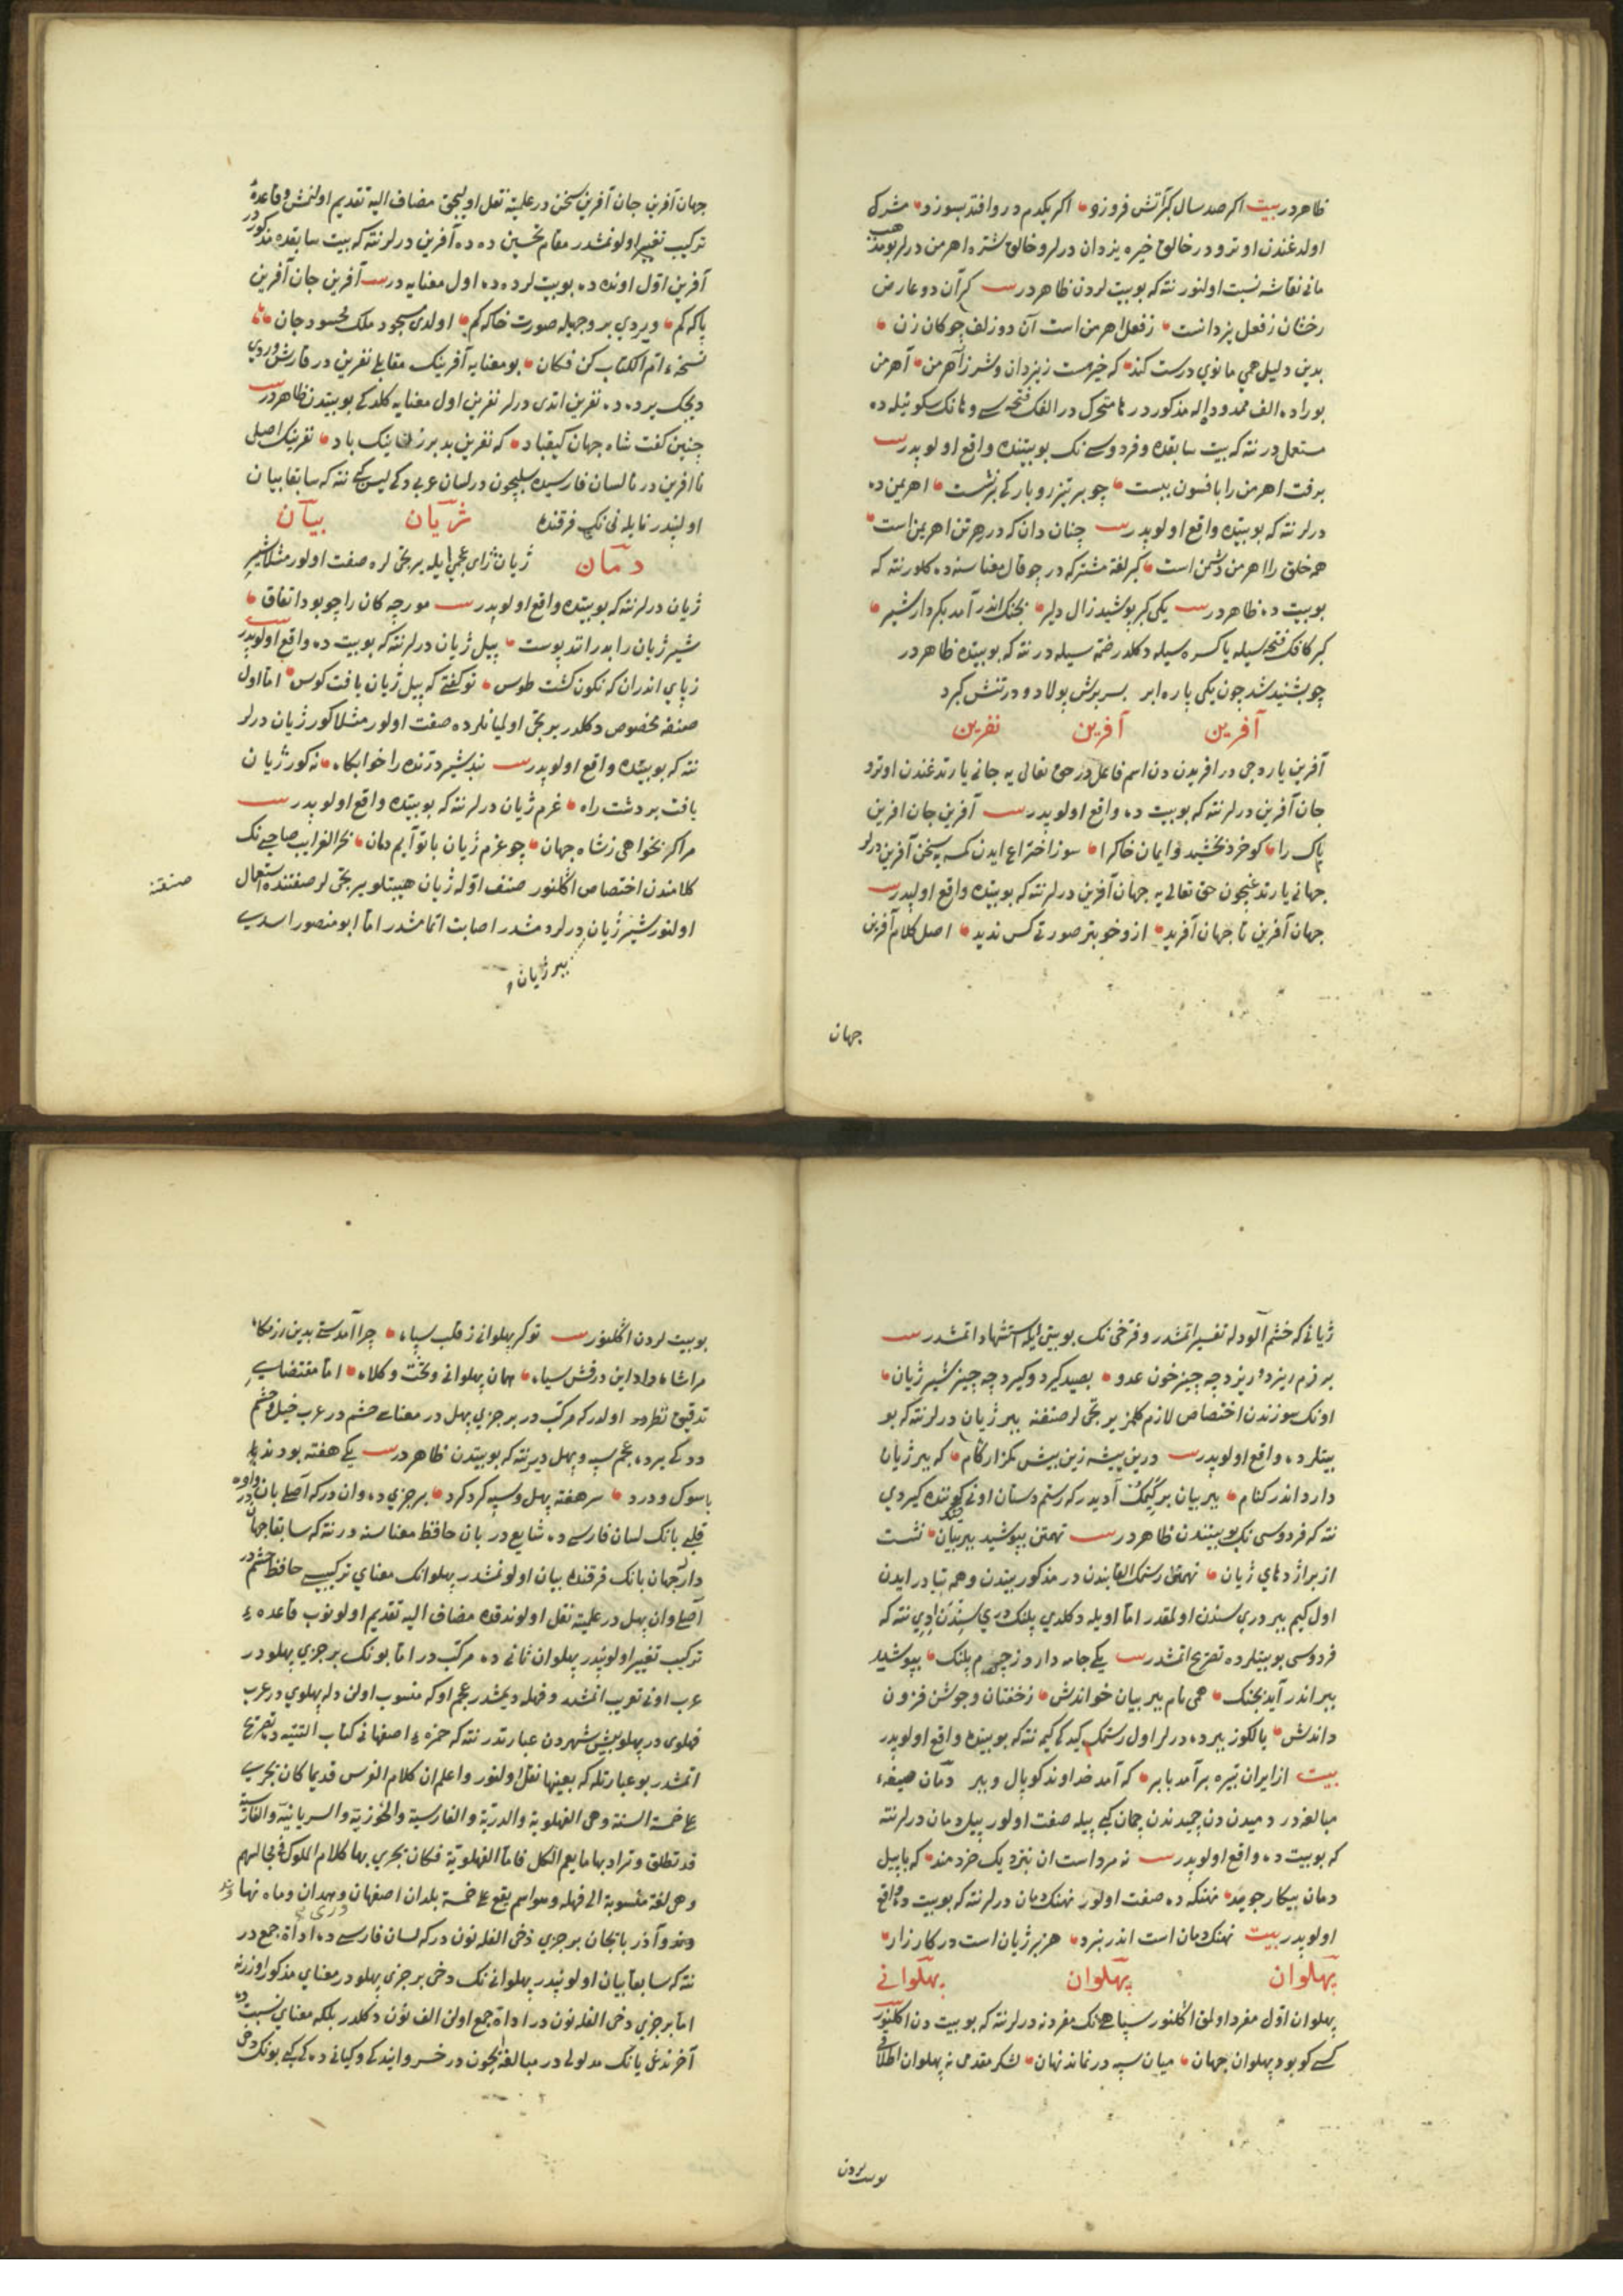 ظاهردر بیت اکر صد سال کبر آتش فروزد اکر یکدم درو افتد بسوزد مشرک
اولدغندن اوترو در خالق خیره یزدان درلر و خالق شره اهرمن درلر بو مذهب
مانی نقاشه نسبت اولنور نته که بو بیت لردن ظاهردر کر آن دو عارض
رخشان ز فعل یزدانست ز فعل اهرمن است آن دو زلف چوکان زن
بدین دلیل همی مانوی درست کند که خیر هست ز یزدان و شر ز آهرمن آهرمن
بوراده الف ممدوده ایله مذکوردر ها متحرک در الفک فتحه سی و هانک سکونیله ده
مستعمل در نته که بیت سابقده و فردوسی نک بو بیتنده واقع اولوبدر
برفت اهرمن را بافسون ببست چو بر تیزرو بارکی برنشست اهریمن ده
درلر نته که بو بیتده واقع اولوبدر چنان دان که در هر تن اهریمن است
همه خلق را اهرمن دشمن است کبر لغة مشترکه در جوقال معناسنه ده کلور نته که
بو بیت ده ظاهردر یکی کبر پوشید زال دلیر بجنک اندر آمد بکردار شیر
کبر کافک فتحه سیله یا کسره سیله دکلدر ضمه سیله در نته که بو بیتده ظاهردر
چو بشنید شد چون یکی پاره ابر بسر برش پولاد و در تنش کبر
آفرین آفرین نفرین
آفرین یاردجی در افریدن دن اسم فاعل در حق تعالی یه جانی یارتدغندن اوترو
جان آفرین درلر نته که بو بیت ده واقع اولوبدر آفرین جان افرین
پاک را کو خرد بخشید و ایمان خاک را سوز اختراع ایدن کمسه یه سخن آفرین درلر
جهانی یارتدغیچون حق تعالی یه جهان آفرین درلر نته که بو بیتده واقع اولوبدر
جهان آفرین تا جهان آفرید ازو خوبتر صورتی کس ندید اصل کلام آفرین
جهان
جهان آفرین جان آفرین سخن در علمیته نقل اولیجق مضاف الیه تقدیم اولنمش و قاعده
ترکیب تغییر اولونمشدر مقام تحسین ده ده آفرین درلر نته که بیت سابقده مذکور در
آفرین اول اونده ده بو بیت لرده ده اول معنایه در آفرین جان آفرین
پاکه کم ویردی بر وجهیله صورت خاکه کم اولدی مسجود ملک محسود جان
نسخه ام الکتاب کن فکان بو معنایه آفرینک مقابلی نفرین در قارش ویردی
دیجک یرده ده نفرین اتدی درلر نفرین اول معنایه کلدکی بو بیتدن ظاهردر
چنین کفت شاه جهان کیقباد که نفرین بد بر زن نیک باد نفرینک اصلی
نا افرین در نا لسان فارسیده سلبیچون در لسان عربده کی لیس کبی نته که سابقا بیان
اولنیدر نایله نی نک فرقنده ژیان بیان
دمان ژیان ژای عجمی ایله یرتجی لره صفت اولور مثلا شیر
ژیان درلر نته که بو بیتده واقع اولوبدر مورچه کان را چو بود اتفاق
شیر ژیان را بدرانند پوست پیل ژیان درلر نته که بو بیت ده واقع اولوبدر
ز پای اندران که نکون کشت طوس تو کفتی که پیل ژیان یافت کوس اما اول
صنفه مخصوص دکلدر یرتجی اولیانلرده صفت اولور مثلا کور ژیان درلر
نته که بو بیتده واقع اولوبدر نبد شیر درنده را خوابکاه نه کور ژیان
یافت بر دشت راه غرم ژیان درلر نته که بو بیتده واقع اولوبدر
مرا کر بخواهی ز شاه جهان چو غرم ژیان باتو آیم دمان بحر الغرایب صاحبی نک
کلامندن اختصاص اکلنور صنف اوله ژیان هیبتلو یرتجی لر صفتنده استعمال
صنفنه
اولنور شیر ژیان درلر دمشدر اصابت اتمامشدر اما ابو منصور اسدی
ببر ژیان
ژیانی که خشم آلود له تفسیر اتمشدر و فرخی نک بو بیتی ایله استشهاد اتمشدر
برزم ریزد و ریزد چه چیز خون عدو بصید کیرد و کیرد چه چیز شیر ژیان
اونک سوزندن اختصاص لازم کلمز یرتجی لر صنفنه ببر ژیان درلر نته که بو
بیتلرده واقع اولوبدر درین پیشه زین بیش مکزار کام که ببر ژیان
دارد اندر کنام ببر بیان بر کیمک آدیدر که رستم دستان اونی کونده کیردی
نته که فردوسی نک بو بیتندن ظاهردر تهمتن بپوشید ببر بیان نشست
از بر اژدهای ژیان تهمتن رستمک القابندن در مذکور بیتدن وهم تبادر ایدن
اول کیم ببر دریسندن اولمقدر اما اویله دکلدی پلنک دریسندن ایدی نته که
فردوسی بو بیتلرده تصریح اتمشدر یکی جامه دارد ز چرم پلنک بپوشید
ببر اندر آید بجنک همی نام ببر بیان خواندش ز خفتان و جوشن فزون
داندش یالکوز ببرده درلر اول رستمک کیدکی کیمه نته که بو بیتده واقع اولوبدر
بیت از ایران تیره برآمد بابر که آمد خداوند کوپال و ببر دمان صیغه
مبالغه در دمیدن دن چمیدندن چمان کبی پیله صفت اولور پیل دمان درلر نته
که بو بیت ده واقع اولوبدر نه مرد است ان بنزد یک خردمند که با پیل
دمان پیکار جوید نهنکه ده صفت اولور نهنک دمان درلر نته که بو بیت ده واقع
اولوبدر بیت نهنک دمان است اندر نبرد هزبر ژیان است در کارزار
پهلوان پهلوان پهلوانی
پهلوان اول مفرد اولمق اکلنور سپاهینک مفردنه درلر نته که بو بیت دن اکلنور
کسی کو بود پهلوان جهان میان سپه در نماند نهان لشکر مقدمی نه پهلوان اطلاقی
بو بیت لردن
بو بیت لردن اکلنور تو کر پهلوانی ز قلب سپاه چرا آمدستی بدین رزمگاه
مرا شاه داد این درفش سیاه همان پهلوانی و تخت و کلاه اما مقتضای
تدقیق نظر اولدر که مرکب در بر جزی پهل در معنای حشم در عرب خیل و حشم
ددکی یرده عجم سپه و پهل دیر نته که بو بیتدن ظاهردر یکی هفته بودند با
سوک و درد سر هفته پهل و سپه کرد کرد بر جزی ده وان در که اصلی بان در واوه
قلبی بانک لسان فارسی ده شایع در بان حافظ معناسنه در نته که سابقا جهان
دار جهان بانک فرقنده بیان اولونمشدر پهلوانک معنای ترکیبی حافظ حشم در
اصلی وان پهل در علمیته نقل اولوندقده مضاف الیه تقدیم اولونوب قاعده
ترکیب تغییر اولونیدر پهلوان ثانی ده مرکب در اما بونک بر جزی پهلو در
عرب اونی تعریب اتمشدر و فهله دیمشدر عجم اوکه منسوب اولن دله پهلوی در عرب
فهلوی در پهلو بش شهردن عبارتدر نته که حمزه اصفهانی کتاب التنبیه ده تصریح
اتمشدر بو عبارتله که بعینها نقل اولنور واعلم ان کلام الفرس قدیما کان یجری
علی خمسة السنة وهی الفهلویة والدریة والفارسیة والخوزیة والسریانیة والفارسیة
قد تطلق و تراد بها ما یعم الکل فاما الفهلویة فکان یجری بها کلام الملوک فی مجالسهم
وهی لغة منسوبة الی فهله وهو اسم یقع علی خمسة بلدان اصفهان و همدان و ماه نهاوند
و آذربایجان بر جزی دخی الفله نون در که لسان فارسی ده اداة جمع در
نته که سابقا بیان اولونیدر پهلوانی نک دخی بر جزی پهلو در معنای مذکور اوزرنه
اما بر جزی دخی الفله نون در اداة جمع اولن الف نون دکلدر بلکه معنای نسبت ده
آخرنده کی یانک مدلولی در مبالغه ایچون در خسروانیده کی و کیانی ده کی کبی بونک دخی